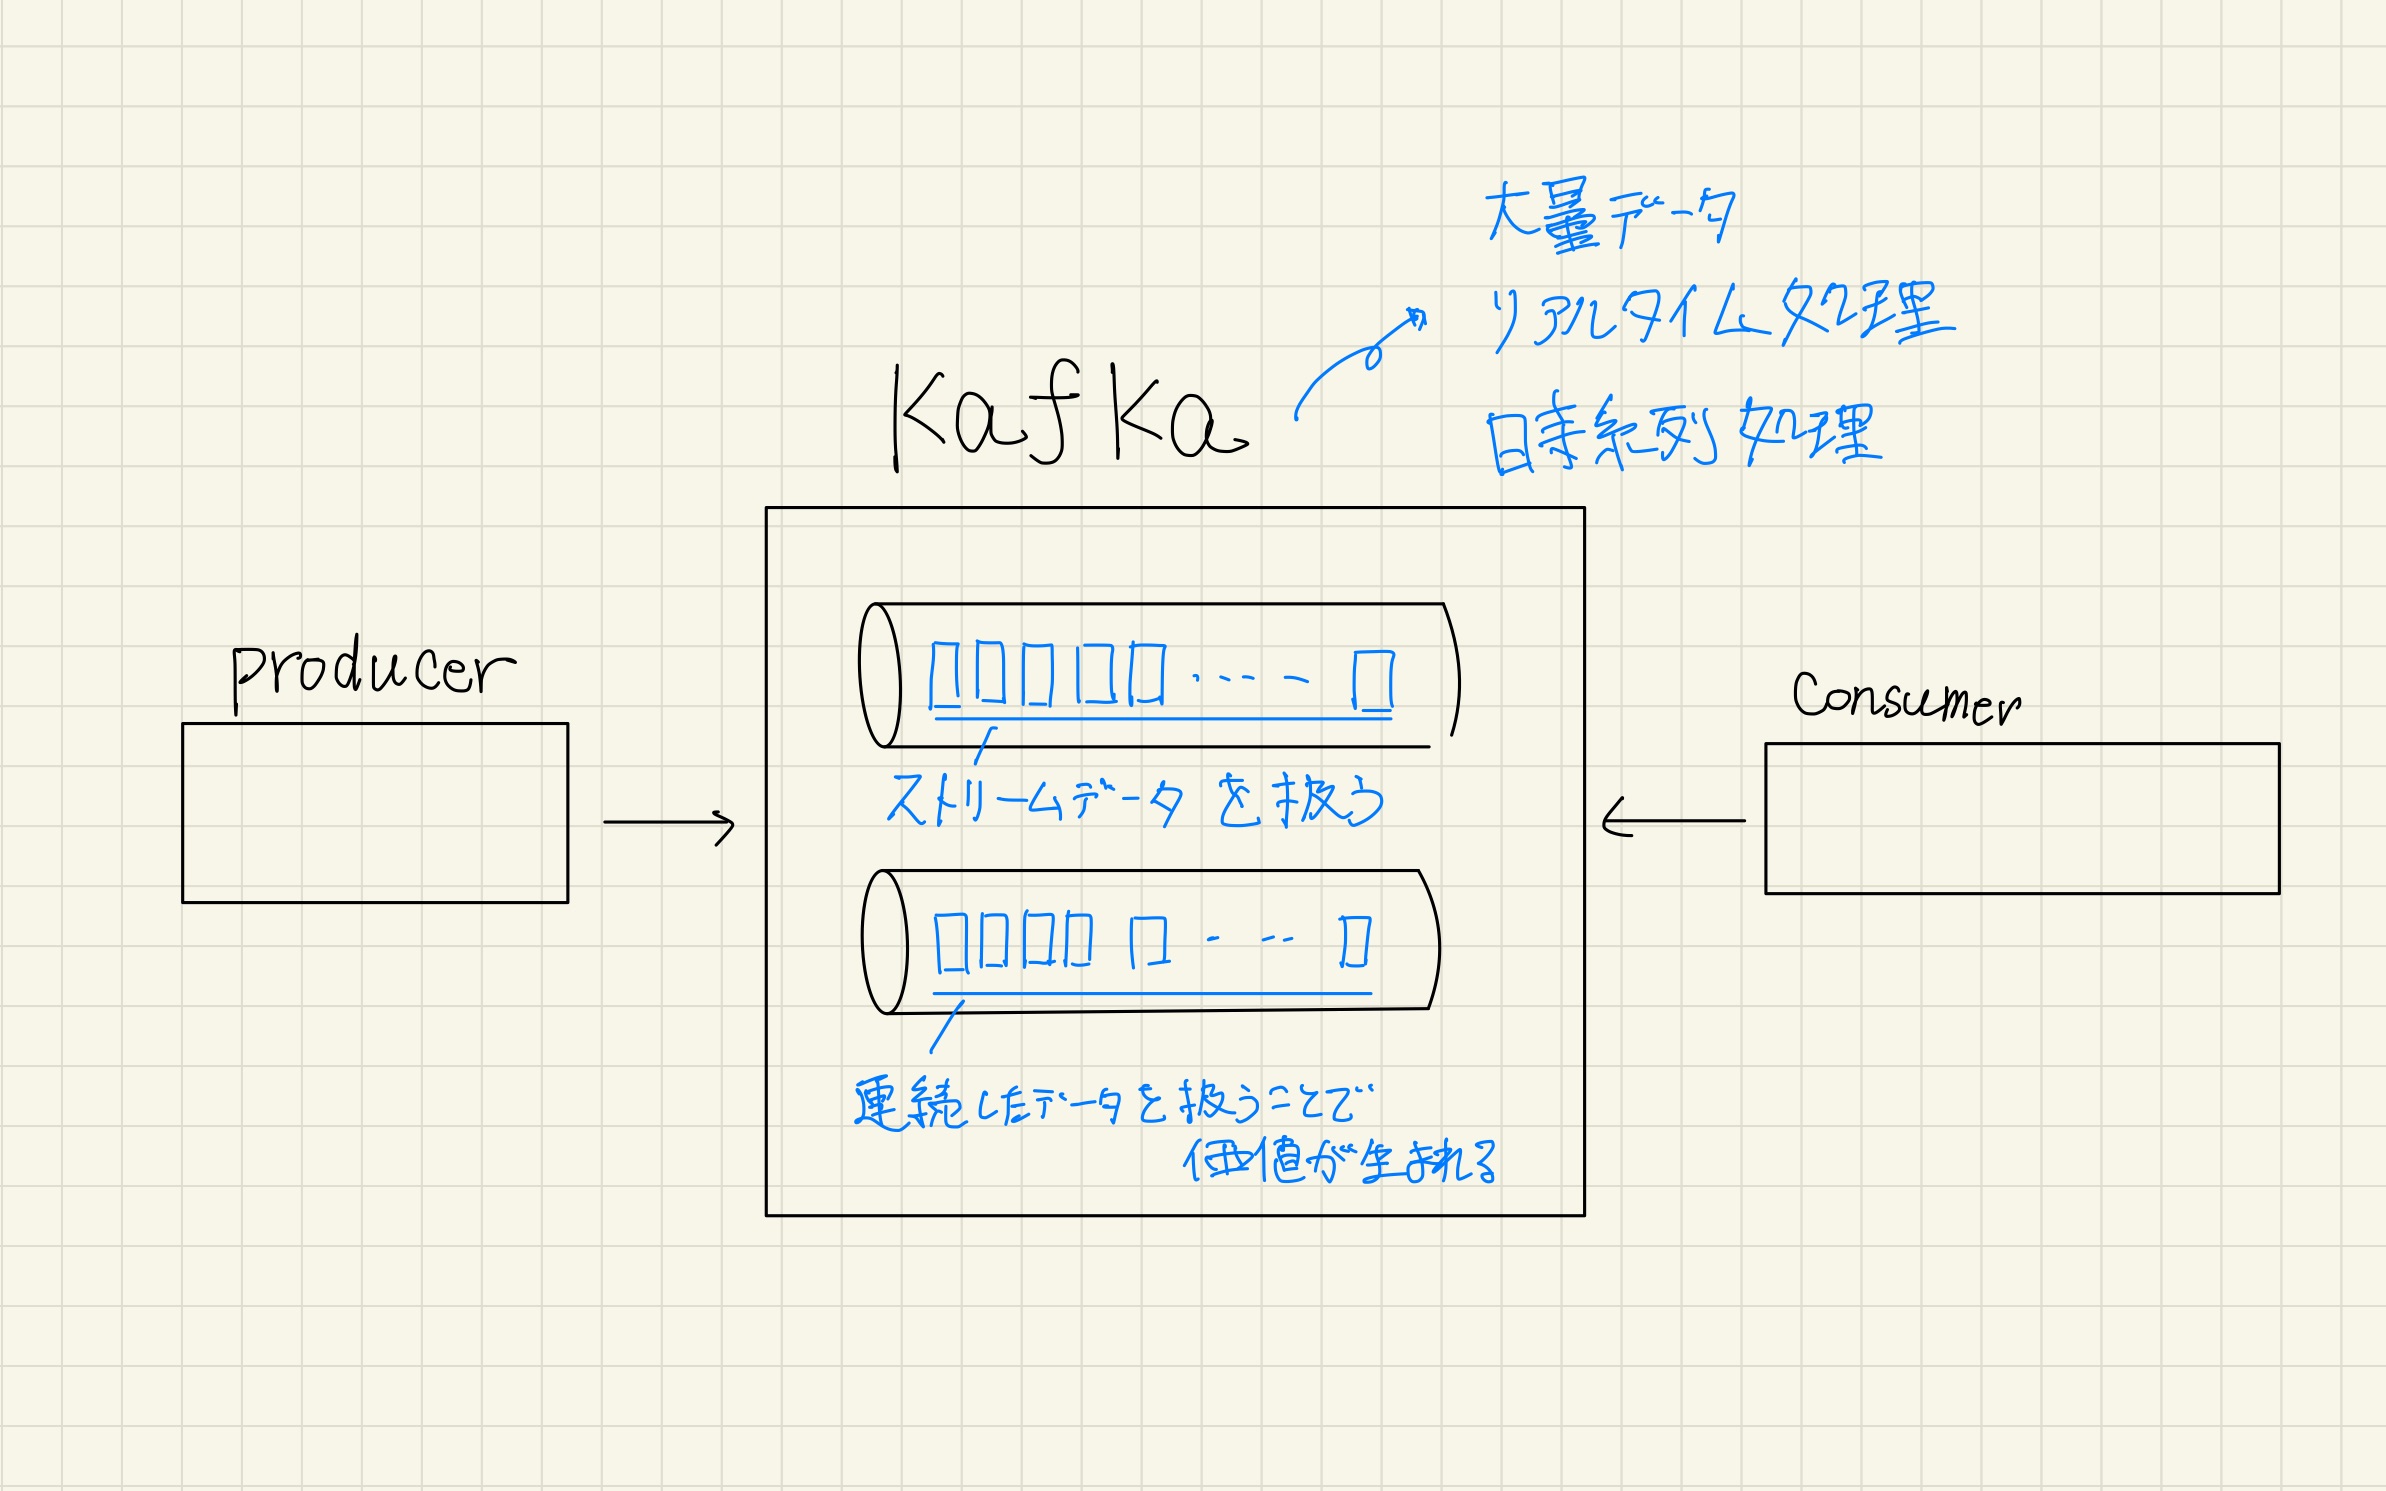 大量データ
リアルタイム処理
時系列処理
Kafka
producer
Consumer
ストリームデータを扱う
連続したデータを扱うことで
価値が生まれる